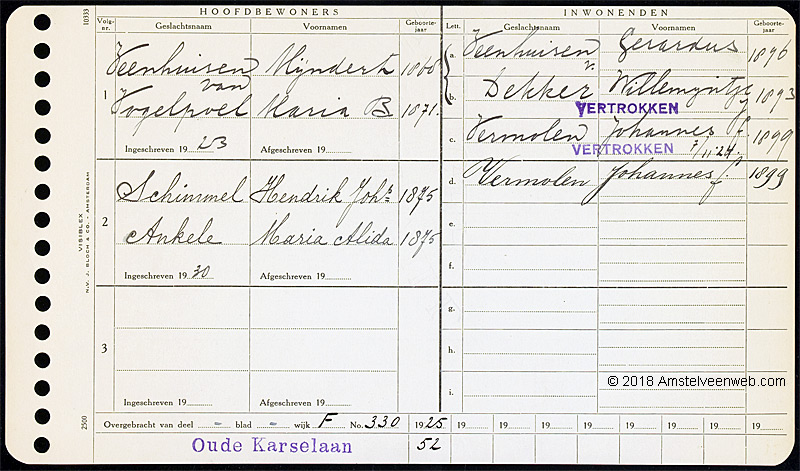 HOOFDBEWONERS
INWONENDEN
Volg-nr.
Geslachtsnaam
Voornamen
Geboorte-jaar
Lett.
Geslachtsnaam
Voornamen
Geboorte-jaar
10333
1
Veenhuisen Myndert 1868
van
Vogelpoel Maria B. 1871.
Ingeschreven 19 23 Afgeschreven 19
2
Schimmel Hendrik Johs 1875
Ankele Maria Alida 1875
Ingeschreven 19 30 Afgeschreven 19
3
Ingeschreven 19 Afgeschreven 19
a. Veenhuisen Gerardus 1896
v.
b. Dekker Willemyntje 1893
VERTROKKEN
c. Vermolen Johannes f. 1899
VERTROKKEN 7/11 24
d. Vermolen Johannes f. 1899
e.
f.
g.
h.
i.
© 2018 Amstelveenweb.com
VISIBLEX
N.V. J. BLOCH & CO. - AMSTERDAM
2500
Overgebracht van deel - blad - wijk F No. 330 1925 19 19 19 19 19 19 19 19
Oude Karselaan 52